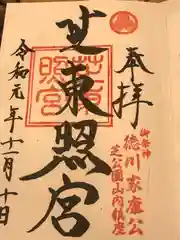 奉拝
御祭神
徳川家康公
芝公園山内鎮座
芝東照宮
芝東照宮
令和元年十一月十日